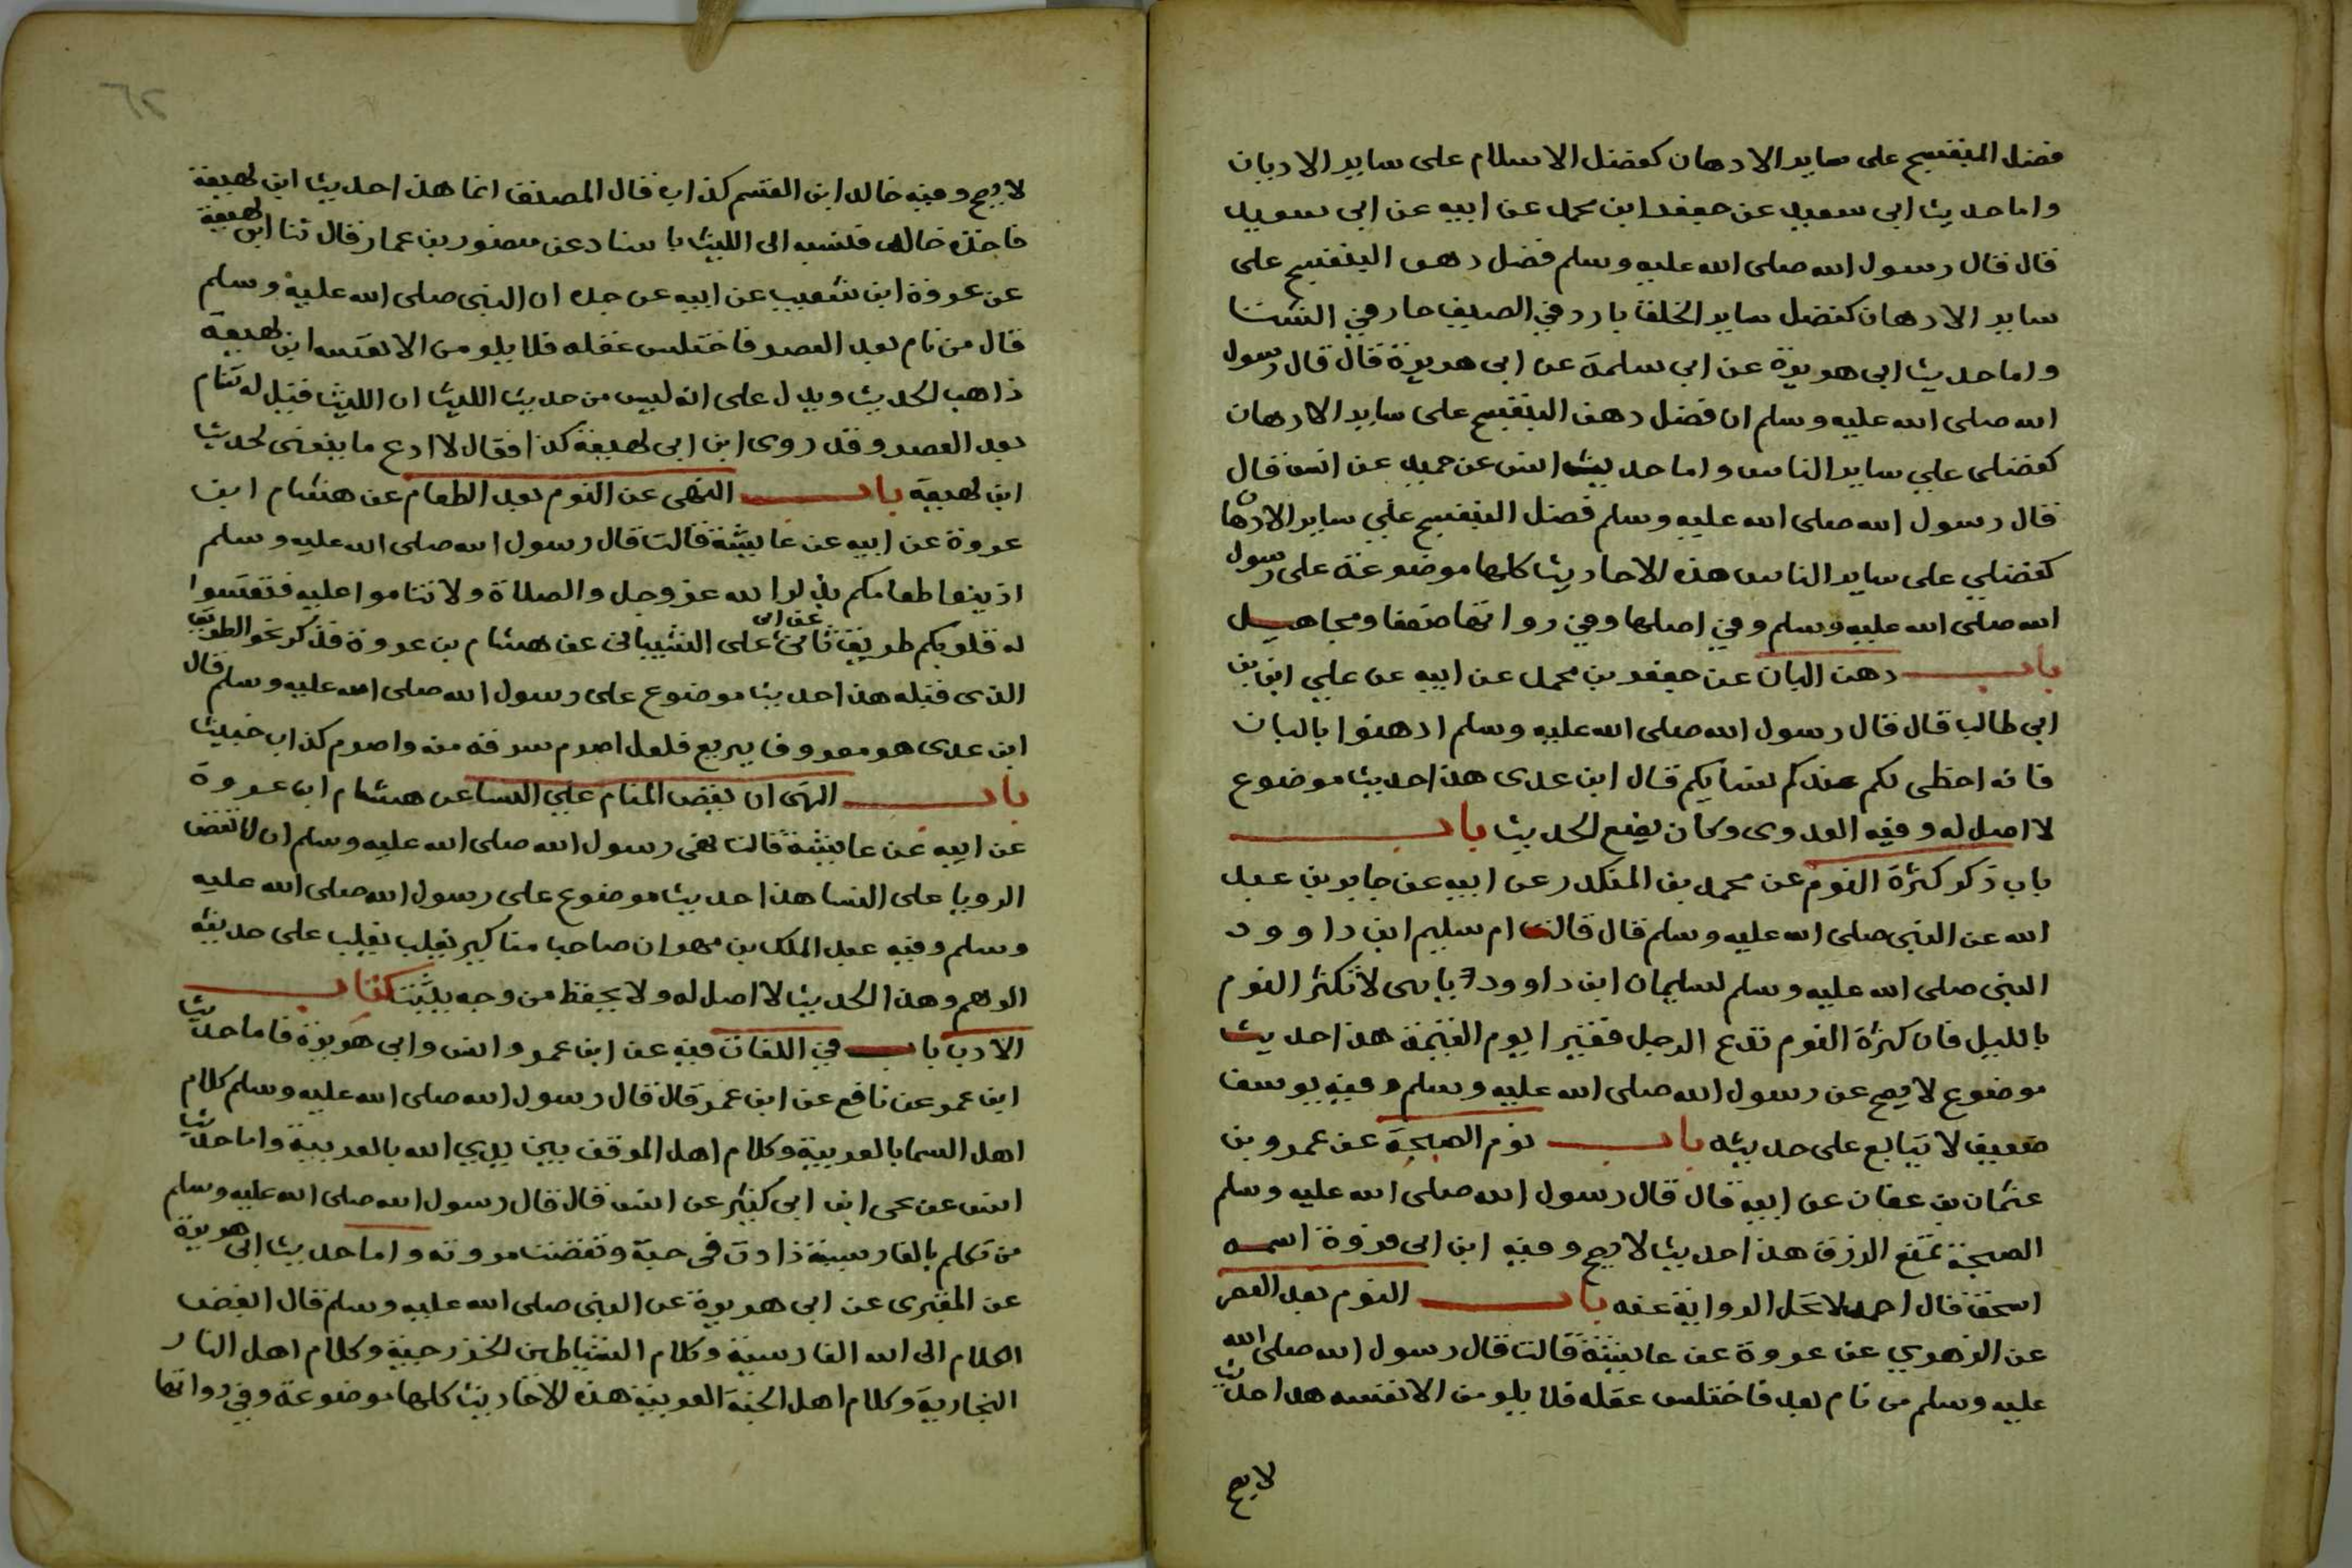 فضل البنفسج على ساير الادهان كفضل الاسلام على ساير الاديان
واما حديث ابى سعيد عن جعفر ابن محمد عن ابيه عن ابى سعيد
قال قال رسول الله صلى الله عليه وسلم فضل دهن البنفسج على
ساير الادهان كفضل ساير الخلق بارد في الصيف حار في الشتا
واما حديث ابى هريرة عن ابى سلمة عن ابى هريرة قال قال رسول
الله صلى الله عليه وسلم ان فضل دهن البنفسج على ساير الادهان
كفضلى علي ساير الناس واما حديث انس عن حميد عن انس قال
قال رسول الله صلى الله عليه وسلم فضل البنفسج علي ساير الادهان
كفضلي على ساير الناس هذه الاحاديث كلها موضوعة على رسول
الله صلى الله عليه وسلم وفي اصلها وفي رواتها ضعفا ومجاهيل
باب دهن البان عن جعفر بن محمد عن ابيه عن علي ابن بن
ابى طالب قال قال رسول الله صلى الله عليه وسلم ادهنوا بالبان
فانه احظى لكم عندكم نسايكم قال ابن عدى هذا حديث موضوع
لا اصل له وفيه العدوى وكان يضع الحديث باب
باب ذكر كثرة النوم عن محمد بن المنكدر عن ابيه عن جابر بن عبد
الله عن النبى صلى الله عليه وسلم قال قالت ام سليم ابن داوود
النبى صلى الله عليه وسلم لسليمان ابن داوود يا بنى لا تكثر النوم
بالليل فان كثرة النوم تدع الرجل فقيرا يوم القيمة هذا حديث
موضوع لا يصح عن رسول الله صلى الله عليه وسلم وفيه يوسف
ضعيف لا يتابع على حديثه باب نوم الصبحة عن عمرو بن
عثمان بن عفان عن ابيه قال قال رسول الله صلى الله عليه وسلم
الصبحة تمنع الرزق هذا حديث لا يصح وفيه ابن ابى فروة اسمه
اسحق قال احمد لا تحل الرواية عنه باب النوم بعد العصر
عن الزهري عن عروة عن عايشة قالت قال رسول الله صلى الله
عليه وسلم من نام بعد فاختلس عقله فلا يلومن الا نفسه هذا حديث
لا يصح
٦٢
لا يصح وفيه خالد ابن القسم كذاب قال المصنف انما هذا حديث ابن لهيعة
فاخذه خالد فنسبه الى الليث باسناد عن منصور بن عمار قال ثنا ابن لهيعة
عن عروة ابن شعيب عن ابيه عن جده ان النبى صلى الله عليه وسلم
قال من نام بعد العصر فاختلس عقله فلا يلومن الا نفسه ابن لهيعة
ذاهب الحديث ويدل على انه ليس من حديث الليث ان الليث قيل له تنام
بعد العصر وقد روى ابن ابى لهيعة كذا فقال لا ادع ما ينفعنى لحديث
ابن لهيعة باب النهى عن النوم بعد الطعام عن هشام ابن
عروة عن ابيه عن عايشة قالت قال رسول الله صلى الله عليه وسلم
اذيبوا طعامكم بذكر الله عز وجل والصلاة ولا تناموا عليه فتقسوا
له قلوبكم طريق ثانى عن ابى على الشيبانى عن هشام بن عروة فذكر نحو الطريق
الذى قبله هذا حديث موضوع على رسول الله صلى الله عليه وسلم قال
ابن عدى هو معروف ببزيع فلعل اصرم سرقه منه واصرم كذاب خبيث
باب النهى ان يقص المنام علي النسا عن هشام ابن عروة
عن ابيه عن عايشة قالت نهى رسول الله صلى الله عليه وسلم ان لا تقص
الرويا على النسا هذا حديث موضوع على رسول الله صلى الله عليه
وسلم وفيه عبد الملك بن مهران صاحب مناكير يغلب يغلب على حديثه
الوهم وهذا الحديث لا اصل له ولا يحفظ من وجه يثبت كتاب
الادب باب في اللغات فيه عن ابن عمر وانس وابى هريرة فاما حديث
ابن عمر عن نافع عن ابن عمر قال قال رسول الله صلى الله عليه وسلم كلام
اهل السما بالعربية وكلام اهل الموقف بين يدي الله بالعربية واما حديث
انس عن يحى ابن ابى كثير عن انس قال قال رسول الله صلى الله عليه وسلم
من تكلم بالفارسية زادت فى خبه ونقصت مروته واما حديث ابى هريرة
عن المقبرى عن ابى هريرة عن النبى صلى الله عليه وسلم قال ابغض
الكلام الى الله الفارسية وكلام الشياطين الخزرجية وكلام اهل النار
البخارية وكلام اهل الجنة العربية هذه الاحاديث كلها موضوعة وفي رواتها